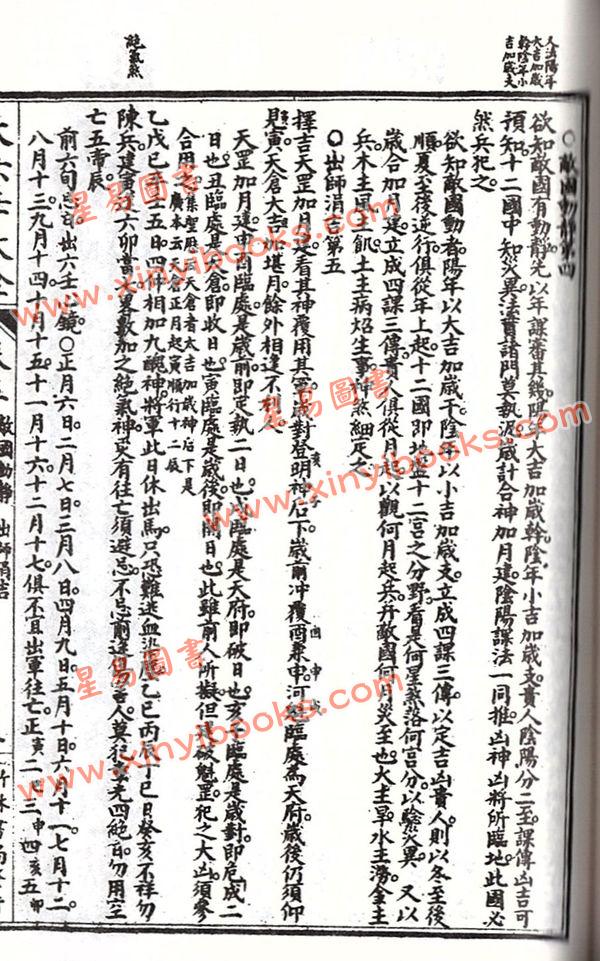 人法陽年
大吉加歲
幹陰年小
吉加歲支
絕氣煞
○敵國動靜第四
欲知敵國有動靜先以年課審其幾陽年大吉加歲幹陰年小吉加歲支貴人陰陽分二至課傳凶吉可
預知十二國中知災異法貴諸門莫執泥歲計合神加月建陰陽課法一同推凶神凶將所臨地此國必
然兵犯之
欲知敵國動者陽年以大吉加歲干陰年以小吉加歲支立成四課三傳以定吉凶貴人則以冬至後
順夏至後逆行俱從年上起十二國即地盤十二宮之分野看是何星煞落何宮分以驗災異又以
歲合加月建立成四課三傳貴人俱從月起以觀何月起兵并敵國何月災至也火主旱水主澇金主
兵木主風土主飢土主病炤生事神煞細定之
○出師涓吉第五
擇吉天罡加月建看其神覆用其軍歲對登明神后下歲前沖覆酉兼申河魁臨處為天府歲後仍須仰
見寅天倉大吉加堪月餘外相逢不利人
天罡加月建申酉臨處是歲前即定執二日也戌臨處是天府即破日也亥子臨處是歲對即危成二
日也丑臨處是天倉即收日也寅臨處是歲後即開日也此雖前人所擬但建破魁罡犯之大凶須參
合用之
乙戊己辛壬五日四仲相加九醜神將軍此日休出馬只恐難逃血
陳兵建寅
亡五帝辰
前六旬忌
八月十二九月十四十月十五十一月十六十二月十七俱不宜出軍往亡正寅二巳三申四亥五卯
敵國動靜
出師涓吉